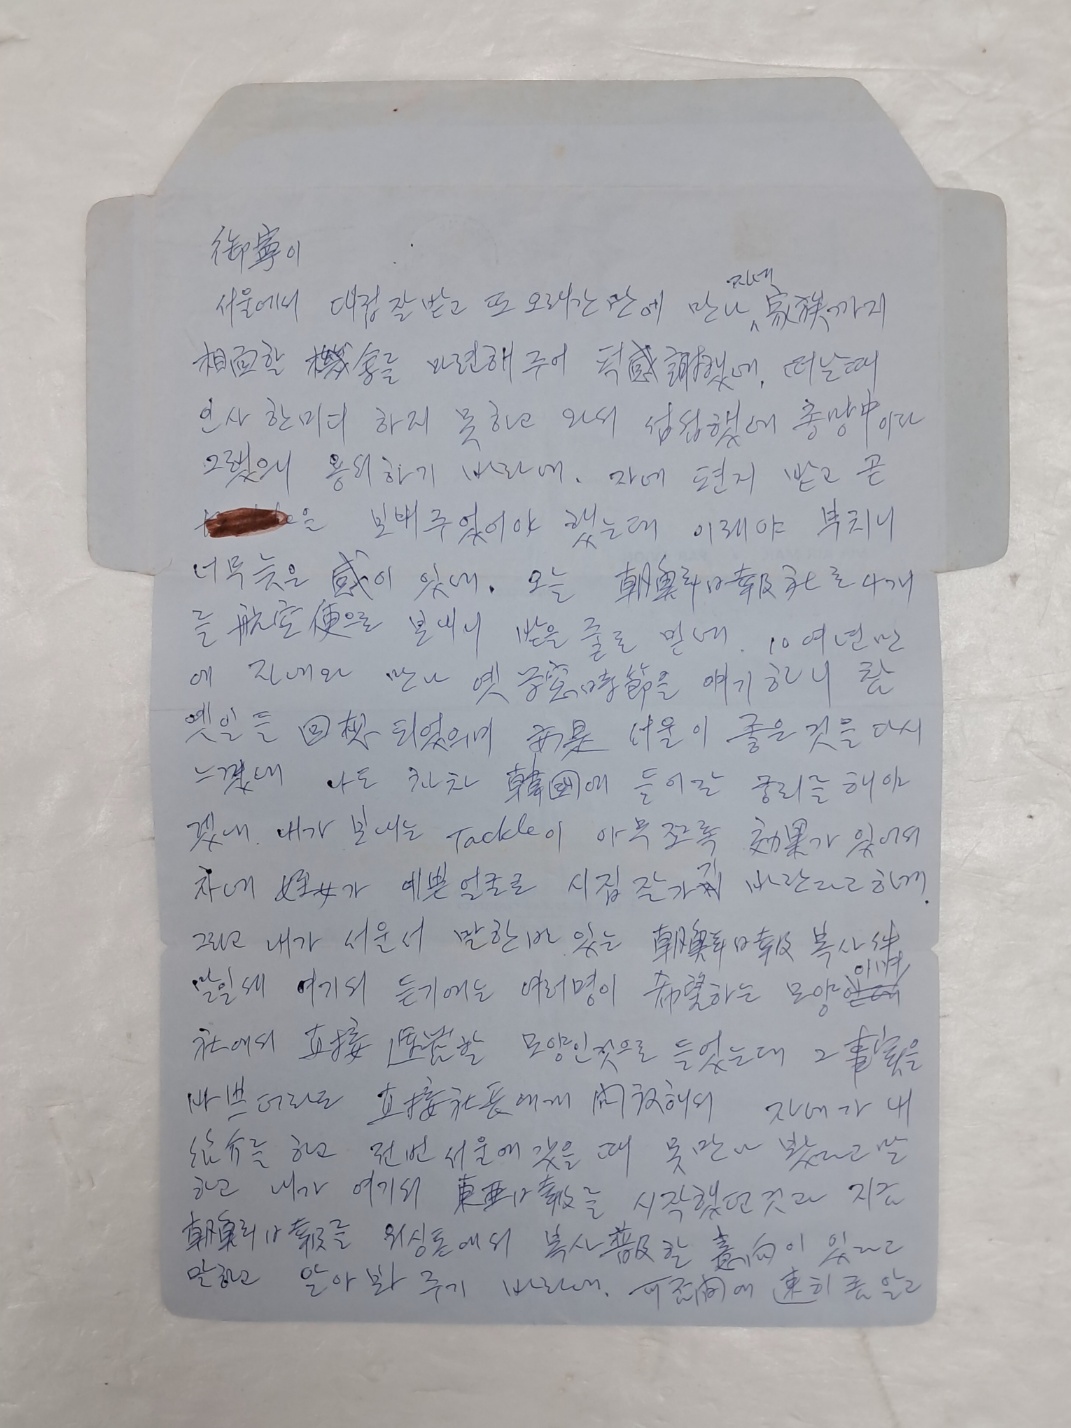 御寧이
서울에서 대접 잘 받고 또 오래간만에 만나 자네 家族까지
相面할 機會를 마련해 주어 퍽 感謝했네. 떠날때
인사 한마디 하지 못하고 와서 섭섭했네 총망中이라
그랬으니 용서하기 바라네. 자네 편지 받고 곧
을 보내주었어야 했는데 이제야 부치니
너무 늦은 感이 있네. 오늘 朝鮮日報社로 4개
를 航空便으로 보내니 받을 줄로 믿네. 10여년만
에 자네와 만나 옛 時節을 얘기하니 참
옛일들 回想되었으며 서울이 좋은 것을 다시
느꼈네 나도 차차 韓國에 들어갈 궁리를 해야
겠네. 내가 보내는 Tackle이 아무쪼록 効果가 있어서
자네 姪女가 예쁜 얼굴로 시집 잘가기 바란다고 하네.
그리고 내가 서울서 말한바 있는 朝鮮日報 복사件
말일세 여기서 듣기에는 여러명이 希望하는 모양이며
社에서 直接 할 모양인것으로 들었는데 그 事實을
바쁘더라도 直接 社長에게 問議해서 자네가 내
紹介를 하고 전번 서울에 갔을 때 못만나 봤다고 말
하고 내가 여기서 東亞日報를 시작했던것과 지금
朝鮮日報를 와싱톤에서 복사 普及할 意向이 있다고
말하고 알아봐 주기 바라네. 알고